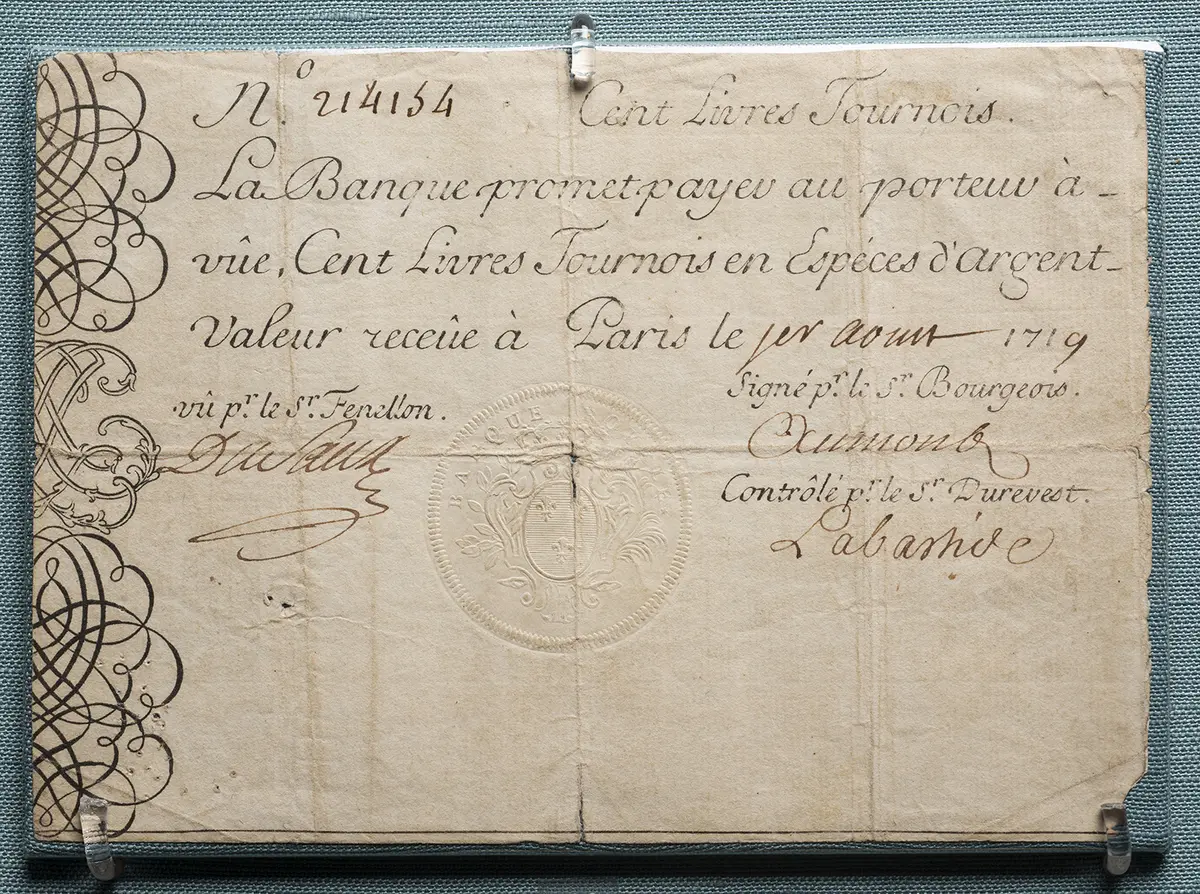 N.º 214154 Cent Livres Tournois.
La Banque promet payer au porteur à
vûe, Cent Livres Tournois en Espéces d'Argent
Valeur receüe à Paris le 1er aoust 1719
vû p.r le S.r Fenellon.
Signé p.r le S.r Bourgeois.
Contrôlé p.r le S.r Durevest.
Labastide
BANQUE